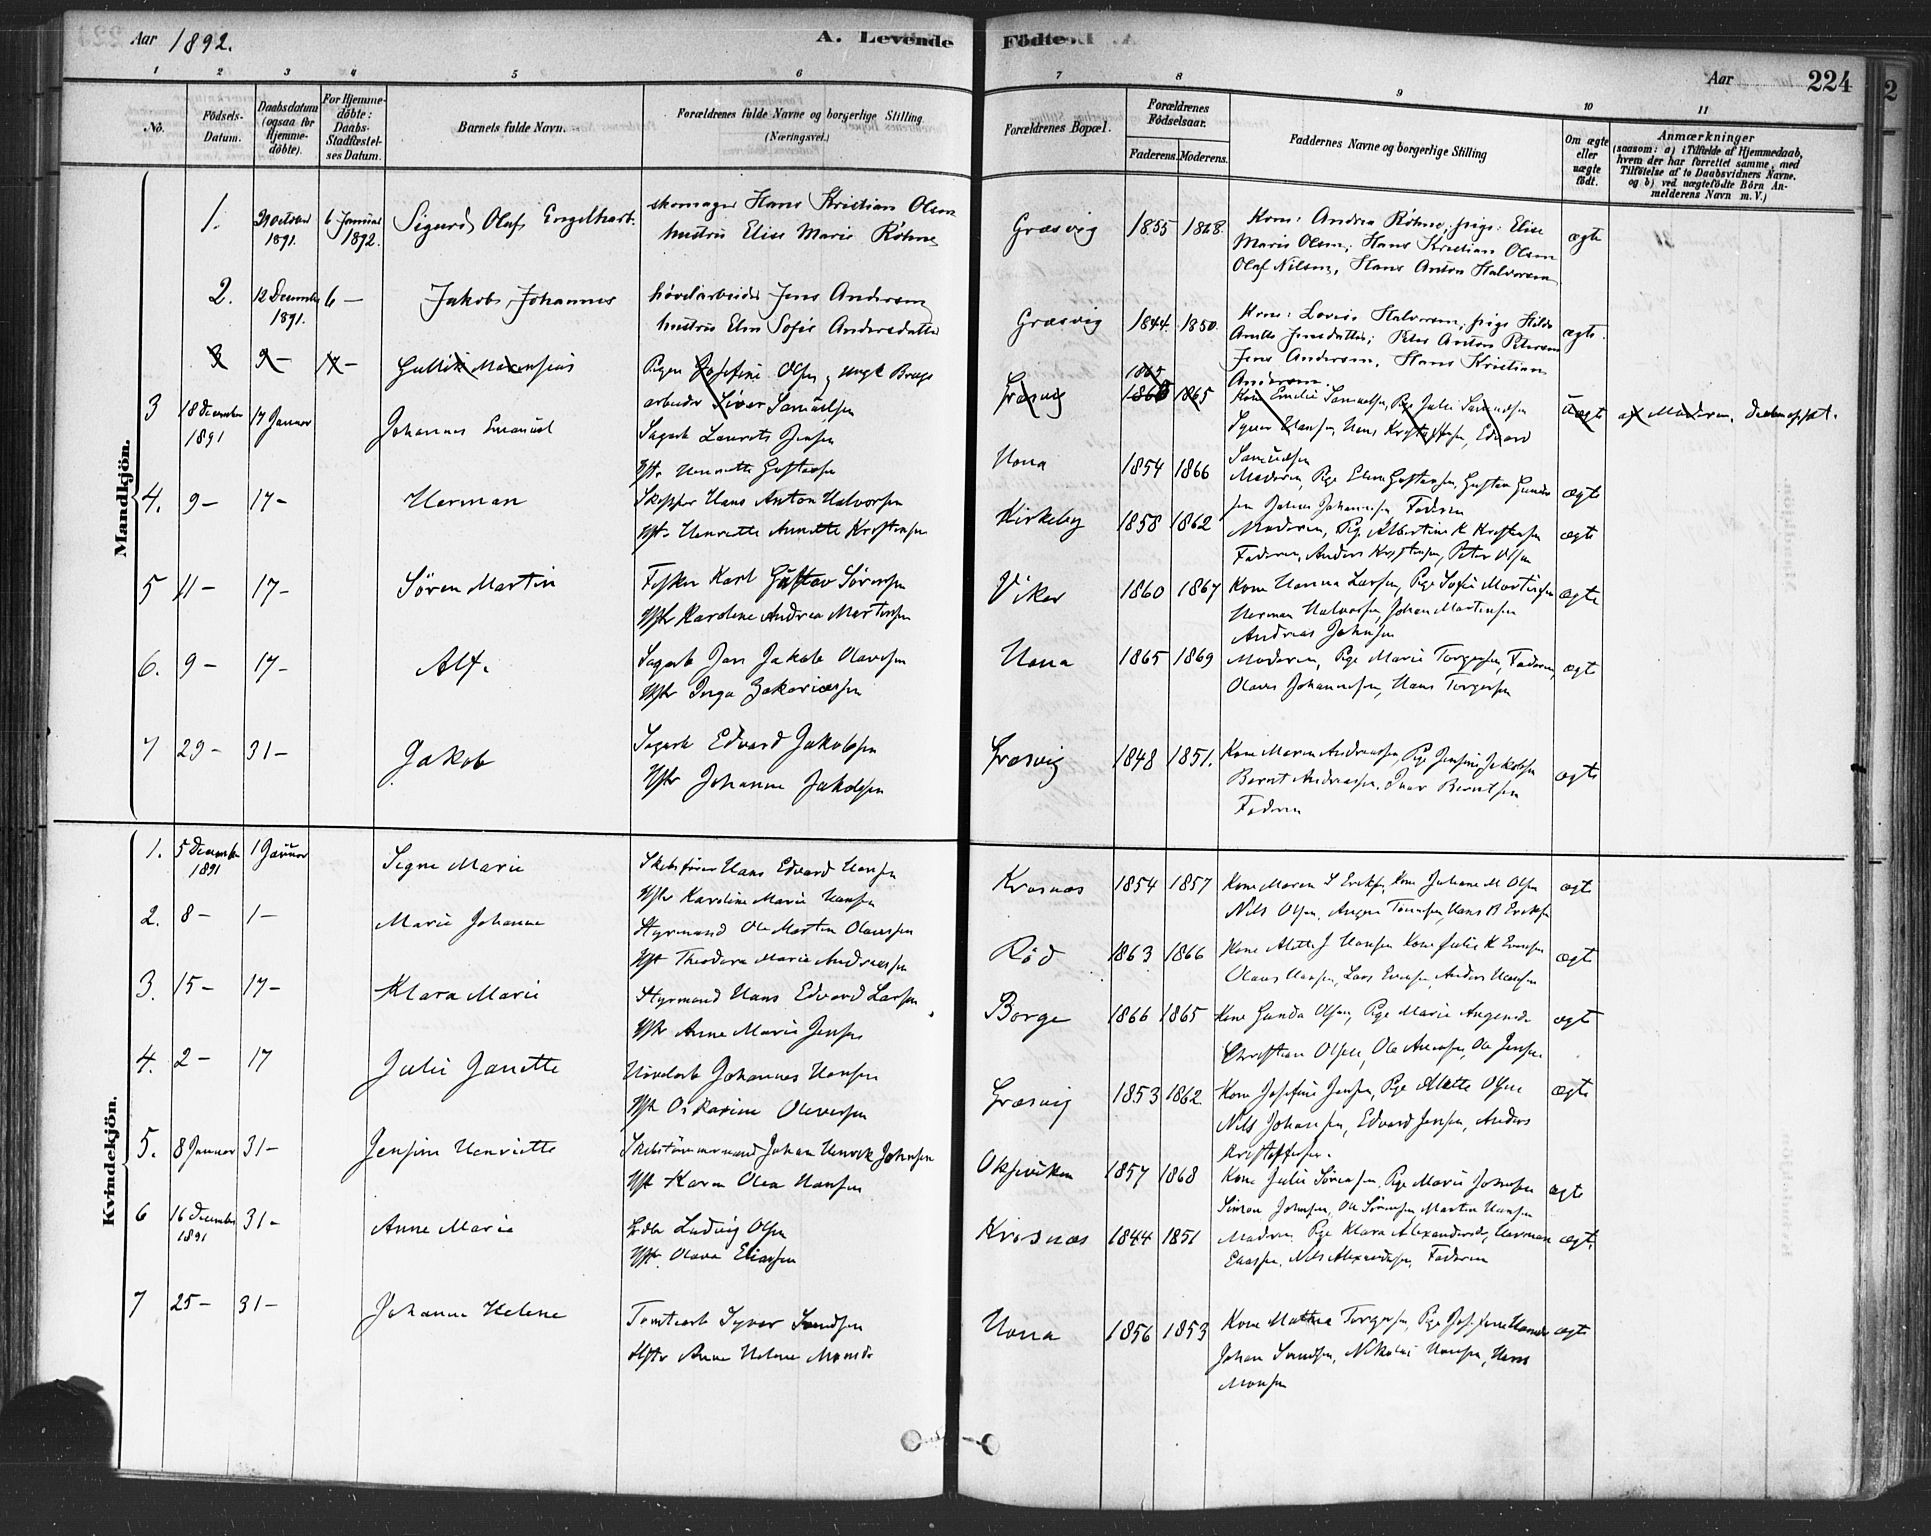 Aar 1892.
A. Levende
Fødte.
Aar
224
1 2 3 4 5 6 7 8 9 10 11
No.
Fødsels-Datum.
Daabsdatum (ogsaa for Hjemmedøbte).
For Hjemmedøbte: Daabs-Stadfæstelses Datum.
Barnets fulde Navn.
Forældrenes fulde Navne og borgerlige Stilling (Næringsvei.)
Forældrenes Bopæl.
Forældrenes Fødselsaar.
Faderens. Moderens.
Faddernes Navne og borgerlige Stilling
Om ægte eller uægte født.
Anmærkninger
(saasom: a) i Tilfælde af Hjemmedaab, hvem der har forrettet samme, med Tilføielse af to Daabsvidners Navne, og b) ved uægtefødte Børn Anmelderens Navn m. V.)
Mandkjøn.
1. 29 october 1891. 6 Januar 1892. Sigurd Olaf Engelhart.
skomager Hans Kristian Olsen
hustru Elise Marie Røhne
Græsvig 1855 1868
Kone: Andrea Røhne, pige: Elise
Marie Olsen; Hans Kristian Olsen
Olaf Nilsen, Hans Anton Halvorsen
ægte
2. 12 December 1891. 6 - Jakob Johannes
høvelarbeider Jens Andersen
hustru Elen Sofie Andersdatter
Græsvig 1844. 1850.
Kone: Lovise Halvorsen, pige Hilda
Jensdatter; Peter Anton Petersen
Jens Andersen, Hans Kristian
Andersen.
ægte.
3 9 -
Pigen Josefine Olsen, ungk Brugs
arbeider Siver Samuelsen
Græsvig 1865 1865
Kone Emilie Samuelsen, Pige Julie Samuelsen
Syver Hansen, Hans Kristoffersen, Edvard
Samuelsen
Uægt
af Moderen.
3 18 December 1891 17 Januar Johannes Emanuel
Sagarb Laurits Jensen
Hst. Henriette Gustavsen
Hona 1854 1866
Moderen, Pige Elen Gustavsen, Gustav
Johannesen Faderen
ægte
4. 9 - 17 - Herman
Skipper Hans Anton Halvorsen
Hst. Henriette Annette Kristensen
Kirkeby 1858 1862
Moderen, Pige Albertine K Kristensen
Faderen, Anders Kristensen, Peter Olsen
ægte
5 11 - 17 - Søren Martin
Fisker Karl Gustav Sørensen
Hstr Karoline Andrea Martinsen
Viker 1860 1867
Kone Hanna Larsen, Pige Sofie Martinsen
Herman Halvorsen, Johan Martinsen
Andreas Johnsen
ægte
6. 9 - 17 - Alf.
Sagarb Jan Jakob Olavesen
Hstr Inga Zakariassen
Hona 1865 1869
Moderen, Pige Marie Torgersen, Faderen,
Olaves Johannesen, Hans Torgersen
ægte
7 29 - 31 - Jakob
Sagarb Edvard Jakobsen
Hstr Johanne Jakobsen
Græsvig 1848 1851.
Kone Maren Andreassen, Pige Jensine Jakobsen
Bernt Andreassen, Berntsen
Faderen
ægte
Kvindekjøn.
1. 5 December 1891 1 Januar Signe Marie
Skibsfører Hans Edvard Hansen
Hstr Karoline Marie Hansen
1854 1857
Kone Maren S Eriksen, Kone Johane M Olsen
Nils Olsen, Hans B Eriksen
ægt
2. 8 - 1 - Marie Johanne
Styrmand Ole Martin Olavesen
Hst Theodora Marie Andreassen
Rød 1863 1866
Kone Alette J Hansen Kone Julie K Evensen
Olaus Hansen, Lars Evensen, Anders Hansen
ægt
3. 15 - 17 - Klara Marie
Styrmand Hans Edvard Larsen
Hstr Anne Marie Jensen
Borge 1866 1865
Kone Gunda Olsen, Pige Marie
Christian Olsen, Ole Ole Jensen
ægt
4. 2 - 17 Julie Janette
Høvelarb Johannes Hansen
Hst Oskarine Oliversen
Græsvig 1853 1862
Kone Josefine Jensen, Pige Alette Olsen
Nils Johansen, Edvard Jensen, Anders
Kristoffersen.
ægte
5. 8 Januar 31 - Jensine Henriette
Skibstømmermand Johan Henrik Johnsen
Hst Karen Olea Hansen
Oksviken 1857 1868
Kone Julie Sørensen, Pige Marie Johnsen
Simon Johnsen, Ole Sørensen Martin Hansen
ægte
6 16 December 1891 31 - Anne Marie
Ludvig Olsen
Hstr. Olava Eliassen
1844 1851
Moderen, Pige Klara Alexandersen, Herman
Eliassen, Nils Alexandersen, Faderen
ægt.
7 25 - 31 - Johanne Helene
Tomtearb Syver
Hstr Anne Helene
Hona 1856 1853
Kone Mathea Torgersen, Pige Josefine
Johan Nikolai Hansen, Hans
Monsen
ægte